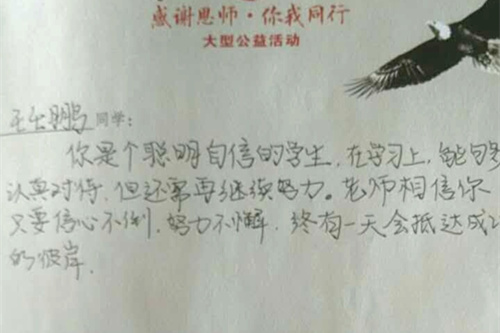 感谢恩师·你我同行
大型公益活动
王大鹏同学:
你是个聪明自信的学生,在学习上,能够
认真对待,但还需再继续努力。老师相信你
只要信心不倒,努力不懈,终有一天会抵达成
的彼岸.